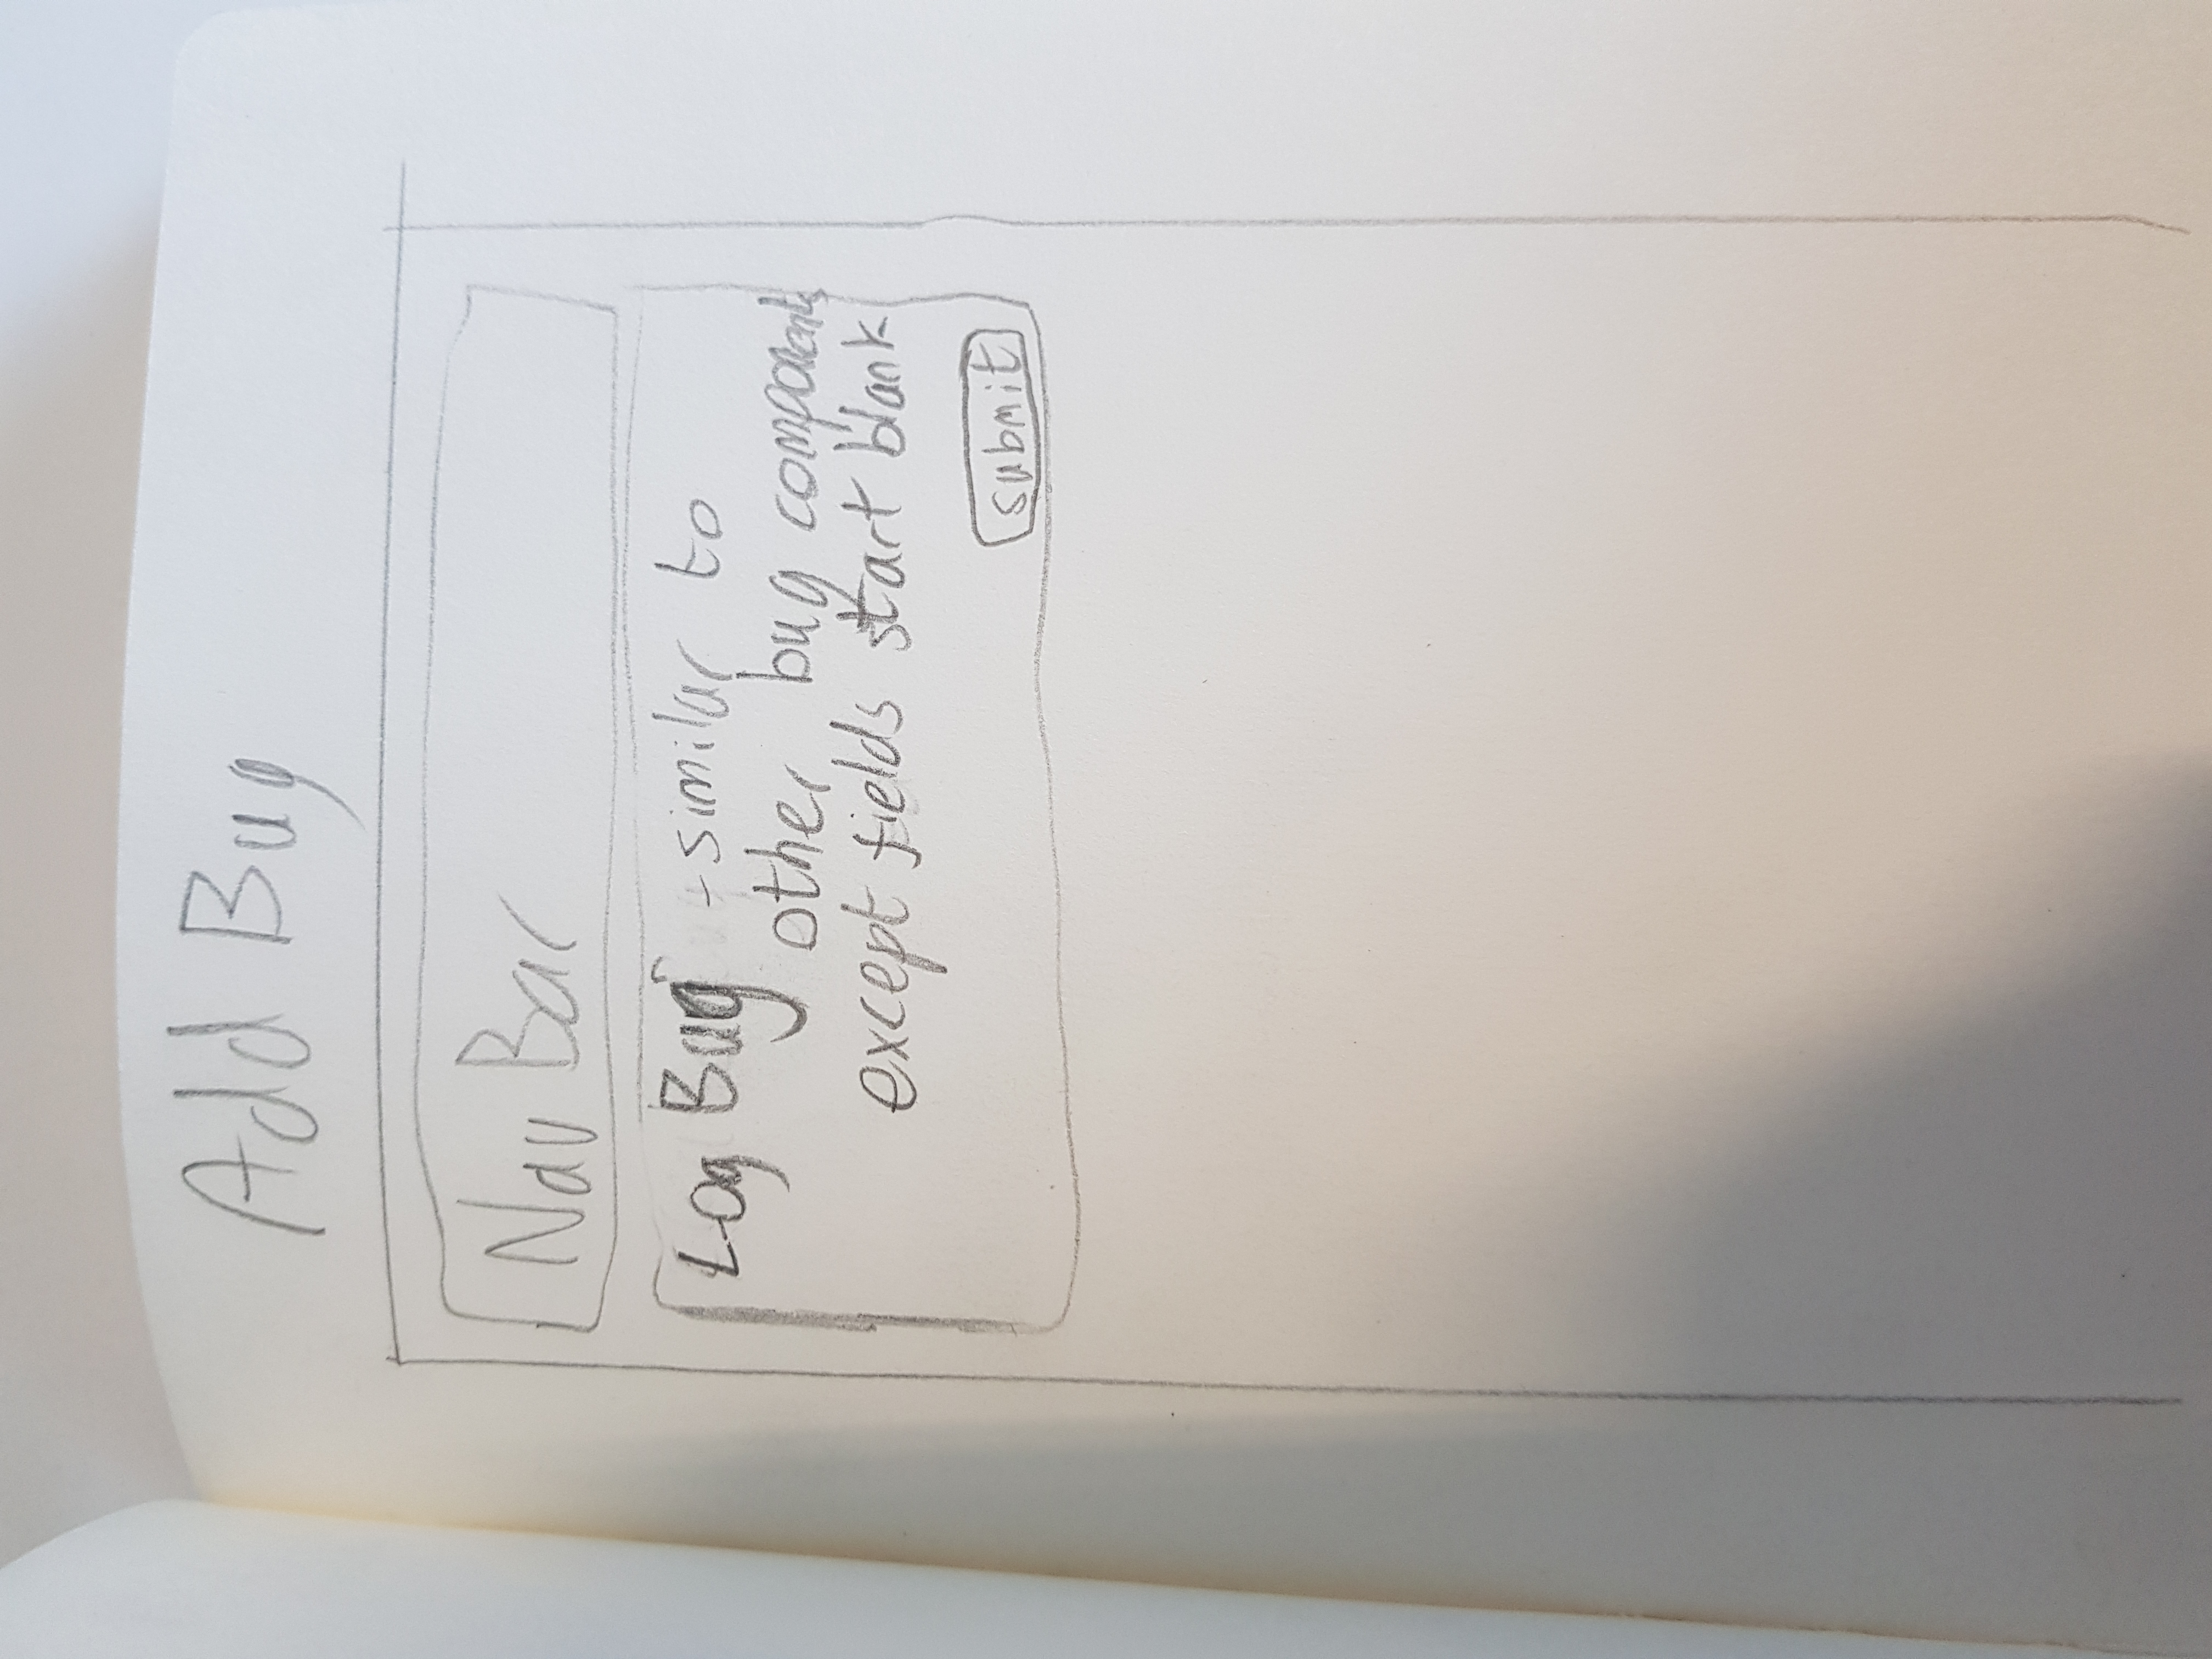 Add Bug
Nav Bar
Log Bug - similar to
other bug components
except fields start blank
submit